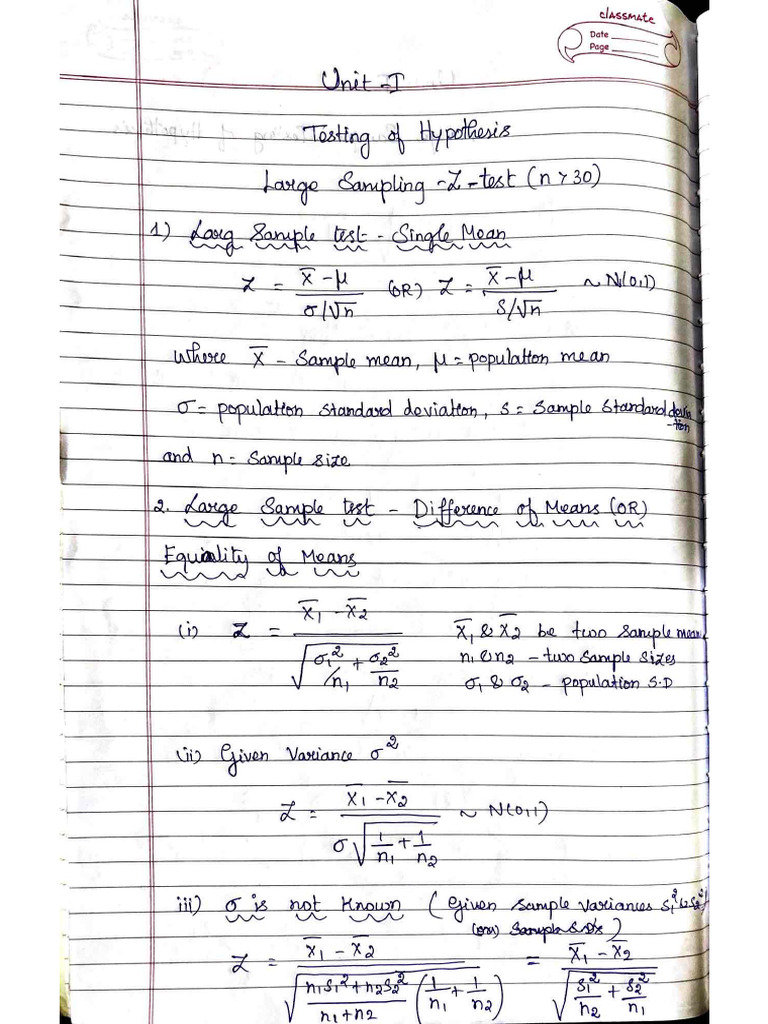 classmate
Date
Page
Unit - I
Testing of Hypothesis
Large Sampling - Z - test (n > 30)
1) Larg Sample test - Single Mean
Z = (x̄ - μ)/(σ/√n) (OR) Z = (x̄ - μ)/(S/√n) ~ N(0,1)
Where x̄ - Sample mean, μ = population mean
σ = population standard deviation, s = Sample Standard devia
-tion
and n = Sample size
2. Large Sample test - Difference of Means (OR)
Equality of Means
(i) Z = (x̄1 - x̄2)/√(σ1²/n1 + σ2²/n2)
x̄1 & x̄2 be two Sample mean
n1 & n2 - two Sample Sizes
σ1 & σ2 - population S.D
(ii) Given Variance σ²
Z = (x̄1 - x̄2)/(σ√(1/n1 + 1/n2)) ~ N(0,1)
iii) σ is not known (Given Sample Variances S1² & S2²
(or) Sample S.D's)
Z = (x̄1 - x̄2)/√((n1s1² + n2s2²)/(n1 + n2) (1/n1 + 1/n2)) = (x̄1 - x̄2)/√(s1²/n2 + s2²/n1)